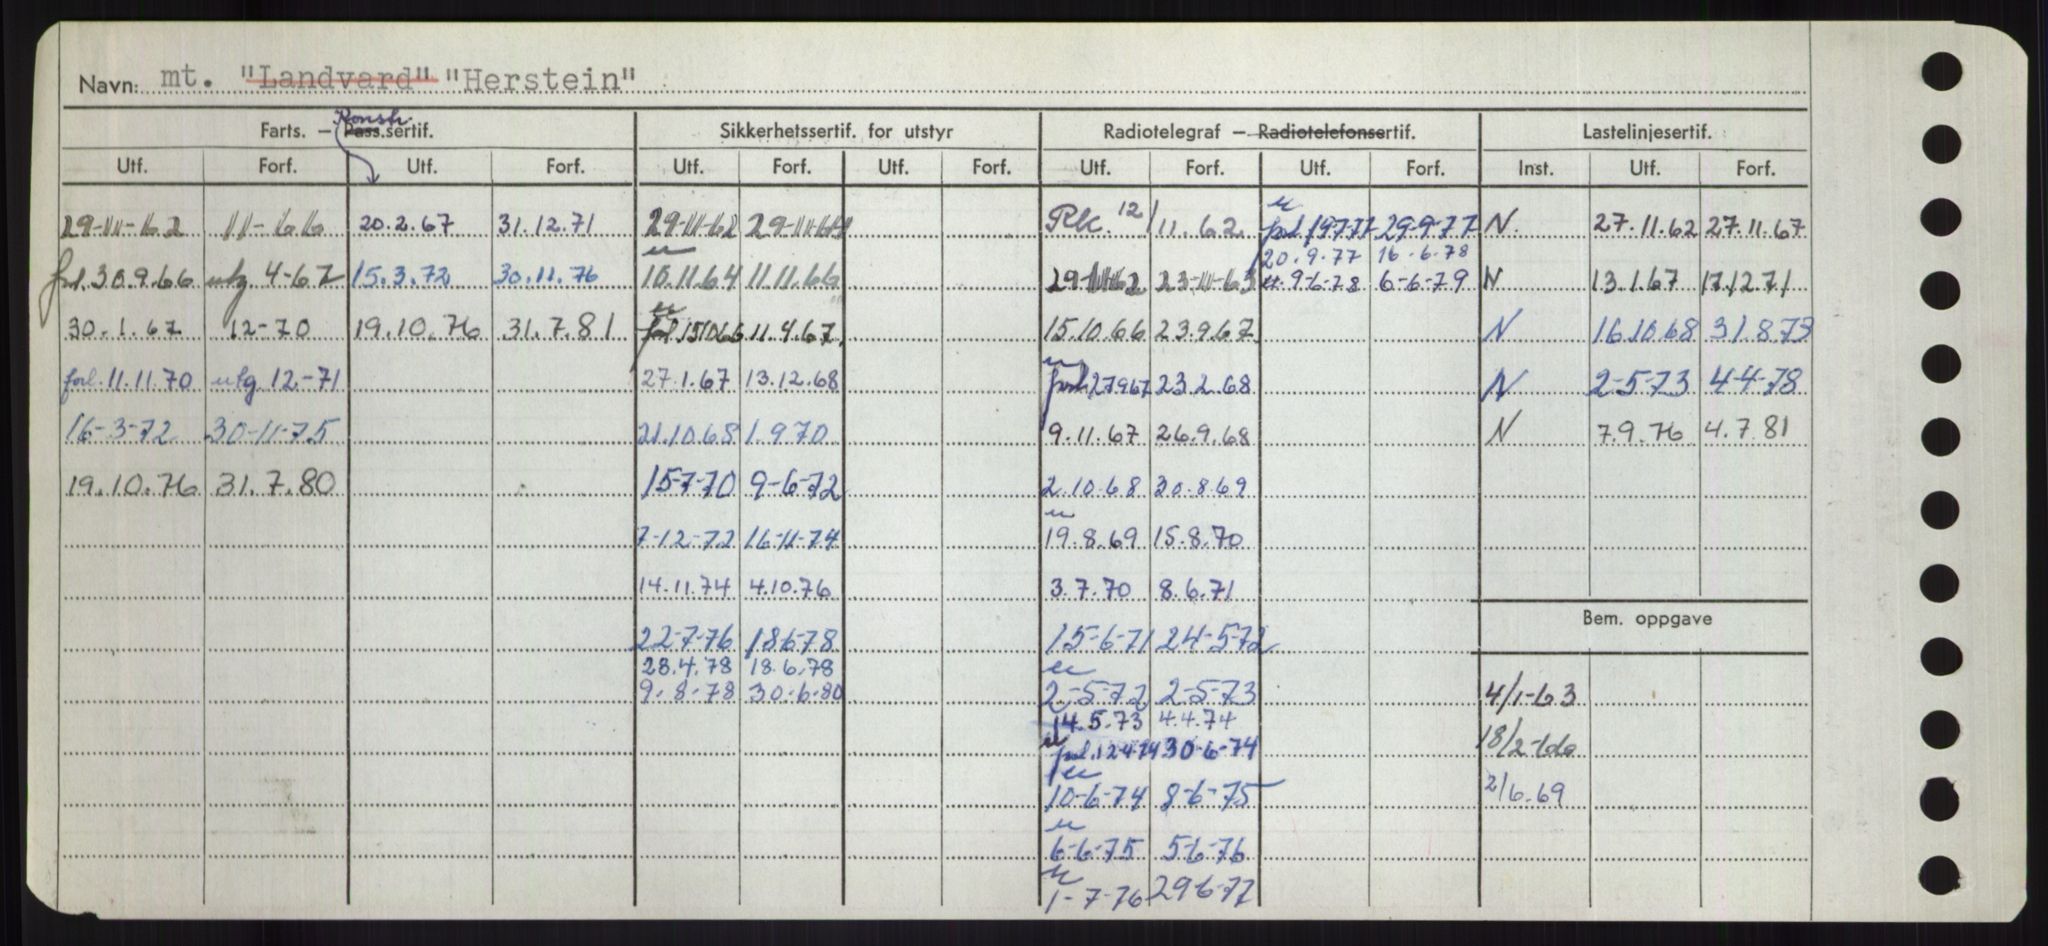 Navn: mt. "Landvard" "Herstein"
Konstr.
Farts. — Pass.sertif. Sikkerhetssertif. for utstyr Radiotelegraf — Radiotelefonsertif. Lastelinjesertif.
Utf. Forf. Utf. Forf. Utf. Forf. Utf. Forf. Utf. Forf. Utf. Forf. Inst. Utf. Forf.
29-11-62 11-66 20.2.67 31.12.71 29-11-62 29-11-64 Rk. 12/11.62 forl. 19-7-77 29-9-77 N. 27.11.62 27.11.67
20.9.77 16.6.78
forl. 30.9.66 utg. 4-67 15.3.72 30.11.76 10.11.64 11.11.66 29-11-62 23-11-63 9-6-78 6-6-79 N 13.1.67 17.12.71
30.1.67 12-70 19.10.76 31.7.81 forl. 15.10.66 11.4.67. 15.10.66 23.9.67 N 16.10.68 31.8.73
forl. 11.11.70 utg 12-71 27.1.67 13.12.68 forl. 27.9.67 23.2.68 N 2-5-73 4-4-78
16-3-72 30-11-75 21.10.68 1.9.70 9.11.67 26.9.68 N 7.9.76 4.7.81
19.10.76 31.7.80 15-7-70 9-6-72 2.10.68 30.8.69
7-12-72 16-11-74 19.8.69 15.8.70
14.11.74 4.10.76 3.7.70 8.6.71
Bem. oppgave
22-7-76 18-6-78 15-6-71 24-5-72
28.4.78 18.6.78
9.8.78 30.6.80 2-5-72 2-5-73 4/1-63
14.5.73 4.4.74
forl. 12-4-74 30-6-74 18/2-66
10-6-74 8-6-75 2/6.69
6-6-75 5-6-76
1-7-76 29-6-77